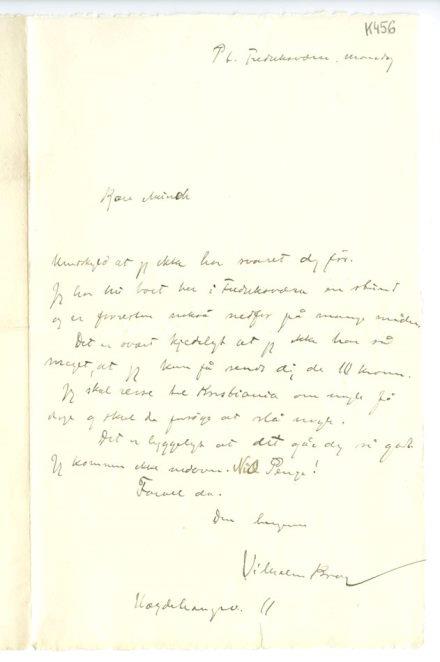 K456
Pt. Fredriksværn, mandag
Kære Munch
Undskyld at jeg ikke har svaret dig før.
Jeg har nu boet her i Fredriksværn en stund
og er forresten også nedfor på mange måder.
Det er svært kjedeligt at jeg ikke har så
meget, at jeg kan få sendt dig de 10 kroner.
Jeg skal reise til Kristiania om nogle få
dage og skal da forsøge at slå nogle.
Det er hyggeligt at det går dig så godt.
Jeg kommer ikke nedover. Nix Penge!
Farvel da.
Din hengivne
Vilhelm Krag
11